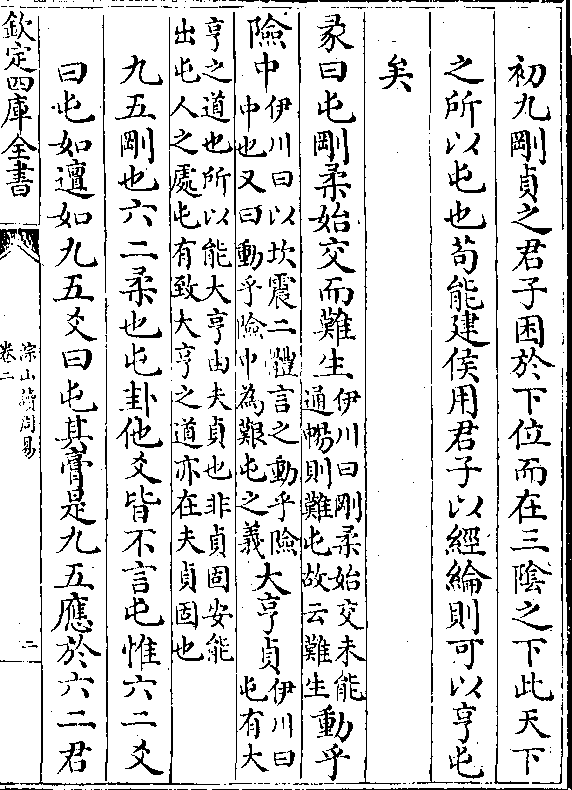 初九剛貞之君子困於下位而在三陰之下此天下
之所以屯也苟能建侯用君子以經綸則可以亨屯
矣
彖曰屯剛柔始交而難生
伊川曰剛柔始交未能
通暢則難屯故云難生
動乎
險中
伊川曰以坎震二體言之動乎險
中也又曰動乎險中為艱屯之義
大亨貞
伊川曰
屯有大
亨之道也所以能大亨由夫貞也非貞固安能
出屯人之處屯有致大亨之道亦在夫貞固也
九五剛也六二柔也屯卦他爻皆不言屯惟六二爻
曰屯如邅如九五爻曰屯其膏是九五應於六二君
欽定四庫全書
淙山讀周易
卷二
二